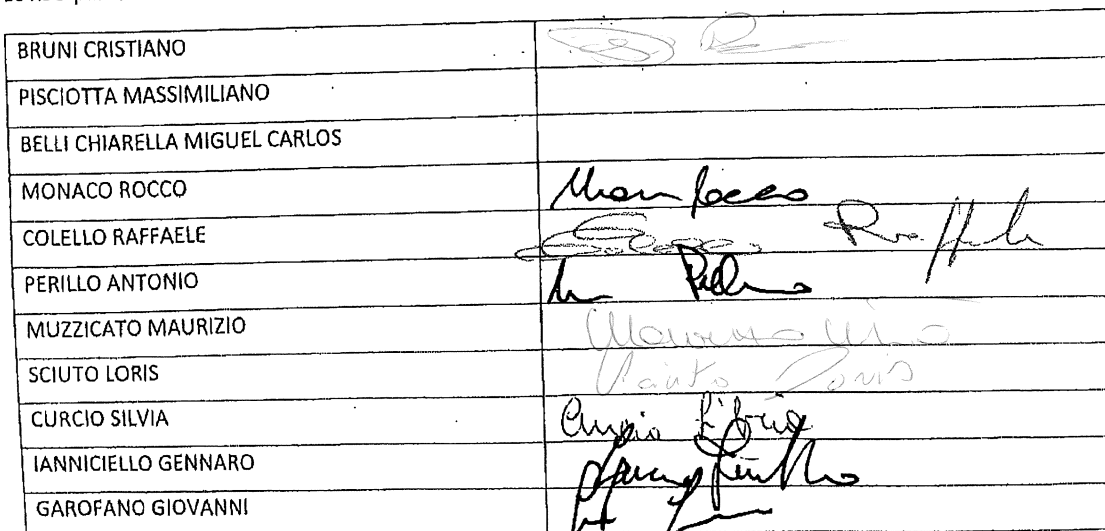 BRUNI CRISTIANO
PISCIOTTA MASSIMILIANO
BELLI CHIARELLA MIGUEL CARLOS
MONACO ROCCO
COLELLO RAFFAELE Raffaele
PERILLO ANTONIO
MUZZICATO MAURIZIO
SCIUTO LORIS Sciuto Loris
CURCIO SILVIA Curcio Silvia
IANNICIELLO GENNARO
GAROFANO GIOVANNI